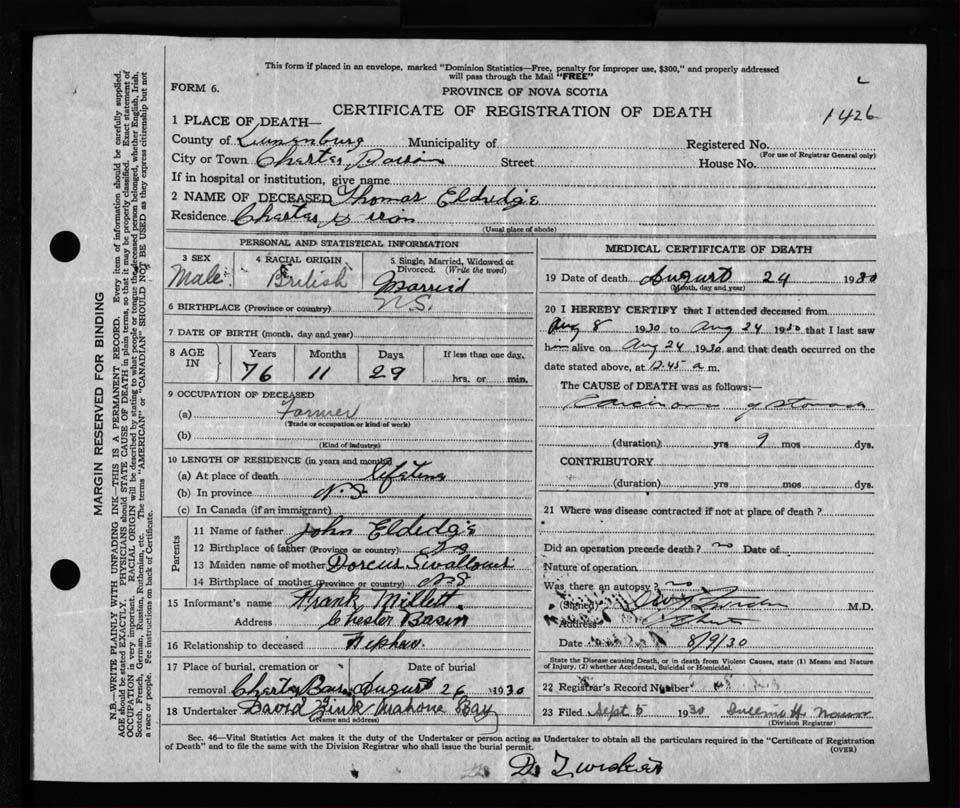 This form if placed in an envelope, marked "Dominion Statistics—Free, penalty for improper use, $300," and properly addressed
will pass through the Mail "FREE"
FORM 6.
PROVINCE OF NOVA SCOTIA
CERTIFICATE OF REGISTRATION OF DEATH
1426
1 PLACE OF DEATH—
County of Lunenburg Municipality of Registered No.
(For use of Registrar General only)
City or Town Chester Basin Street House No.
If in hospital or institution, give name
2 NAME OF DECEASED Thomas Eldredge
Residence Chester
(Usual place of abode)
PERSONAL AND STATISTICAL INFORMATION
3 SEX 4 RACIAL ORIGIN 5 Single, Married, Widowed or
Divorced. (Write the word)
Male British Married
6 BIRTHPLACE (Province or country) N.S.
7 DATE OF BIRTH (month, day and year)
8 AGE IN Years Months Days If less than one day,
76 11 29 hrs. or min.
9 OCCUPATION OF DECEASED
(a) Farmer
(Trade or occupation or kind of work)
(b)
(Kind of industry)
10 LENGTH OF RESIDENCE (in years and months)
(a) At place of death
(b) In province N.S.
(c) In Canada (if an immigrant)
Parents
11 Name of father John Eldedge
12 Birthplace of father (Province or country) N.S
13 Maiden name of mother Dorcus Swallows
14 Birthplace of mother (Province or country) N.S
15 Informant's name Frank Millett
Address Chester Basin
16 Relationship to deceased Nephew
17 Place of burial, cremation or Date of burial
removal Chester Basin August 26 1930
18 Undertaker David Zink Mahone Bay
(Name and address)
MEDICAL CERTIFICATE OF DEATH
19 Date of death August 24 1930
(Month, day and year)
20 I HEREBY CERTIFY that I attended deceased from
Aug 8 1930 to Aug 24 1930 that I last saw
him alive on Aug 24 1930 and that death occurred on the
date stated above, at 12.45 a m.
The CAUSE of DEATH was as follows:—
Carcinoma of stomach
(duration) yrs 9 mos dys.
CONTRIBUTORY
(duration) yrs mos dys.
21 Where was disease contracted if not at place of death?
Did an operation precede death? no Date of
Nature of operation
Was there an autopsy? no
(Signed) M.D.
Address Chester
Date 8/9/30
State the Disease causing Death, or in death from Violent Causes, state (1) Means and Nature
of Injury, (2) whether Accidental, Suicidal or Homicidal.
22 Registrar's Record Number
23 Filed Sept 5 1930
(Division Registrar)
Sec. 46—Vital Statistics Act makes it the duty of the Undertaker or person acting as Undertaker to obtain all the particulars required in the "Certificate of Registration
of Death" and to file the same with the Division Registrar who shall issue the burial permit. (OVER)
MARGIN RESERVED FOR BINDING
N.B.—WRITE PLAINLY WITH UNFADING INK—THIS IS A PERMANENT RECORD. Every item of information should be carefully supplied.
AGE should be stated EXACTLY. PHYSICIANS should STATE CAUSE OF DEATH in plain terms, so that it may be properly classified. Exact statement of
OCCUPATION is very important. RACIAL ORIGIN will be described by stating to what people or tongue the deceased person belonged, whether English, Irish,
Scotch, French, German, Russian, Ruthenian, etc. The terms "AMERICAN" or "CANADIAN" SHOULD NOT BE USED as they express citizenship but not
a race or people. Fee instructions on back of Certificate.